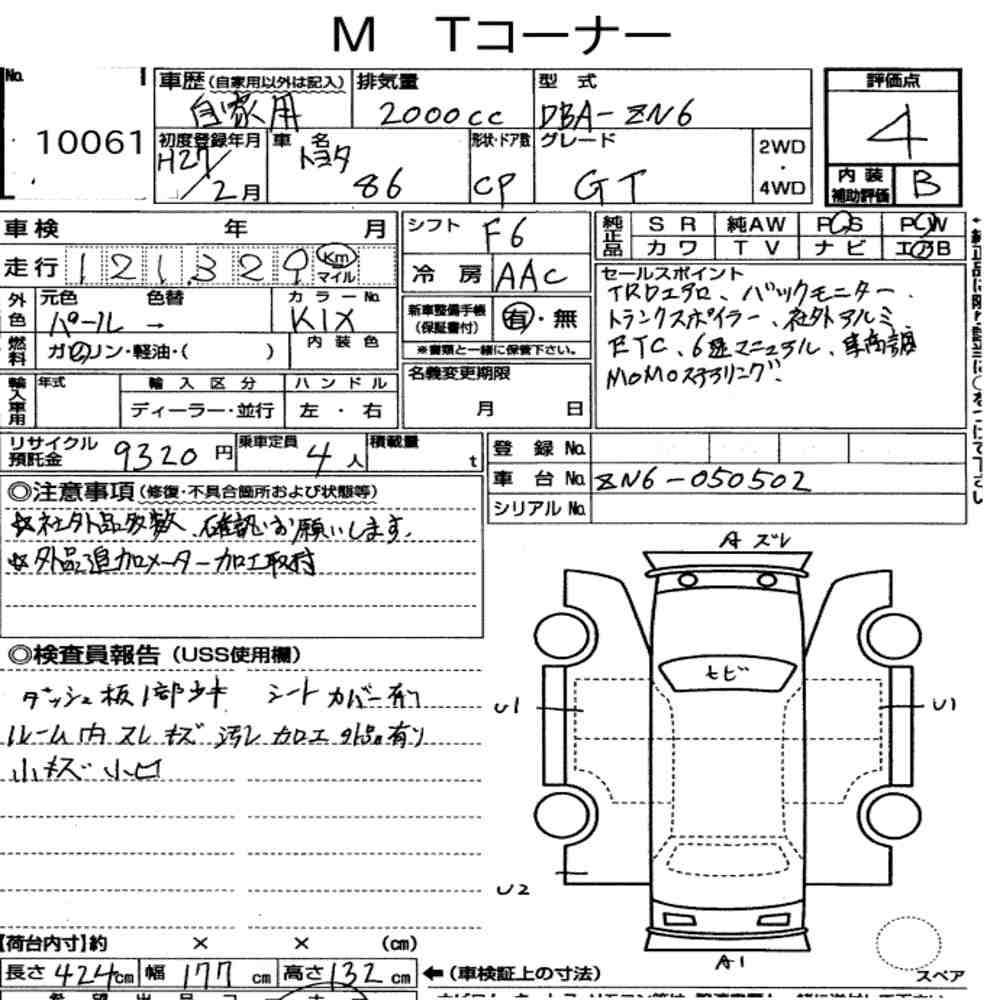 M Tコーナー
No. 10061
車歴 (自家用以外は記入) 自家用
排気量 2000cc
型式 DBA-ZN6
評価点 4
初度登録年月 H27/2月
車名 トヨタ 86
形状・ドア数 CP
グレード GT
2WD・4WD
内装補助評価 B
車検 年 月
シフト F6
純正品 SR 純AW PS PW
カワ TV ナビ エアB
走行 121,329 Km マイル
冷房 AAC
セールスポイント
TRDエアロ、バックモニター、
トランクスポイラー、社外アルミ
ETC、6速マニュアル、車高調
MOMOステアリング
外色 元色 パール → 色替
カラーNo. K1X
新車整備手帳(保証書付) 有・無
※書類と一緒に保管下さい。
燃料 ガソリン・軽油・( )
内装色
名義変更期限 月 日
輸入車用 年式 輸入区分 ハンドル
ディーラー・並行 左・右
リサイクル預託金 9320円
乗車定員 4人
積載量 t
登録No.
車台No. ZN6-050502
シリアルNo.
◎注意事項(修復・不具合箇所および状態等)
☆社外品多数、確認お願いします。
☆外品追加メーター加工取付
◎検査員報告(USS使用欄)
ダッシュ板1部 シートカバー有り
ルーム内スレキズ汚レ 加工外品有り
小キズ小凹
Aズレ
トビ
U1
U1
U2
A1
スペア
【荷台内寸】約 × × (cm)
長さ 424cm 幅 177cm 高さ 132cm
←(車検証上の寸法)